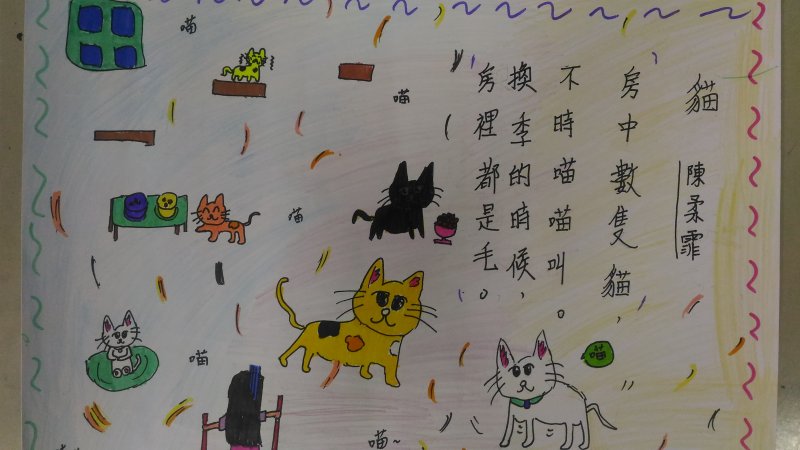 貓
陳柔霏
房中數隻貓，
不時喵喵叫。
換季的時候，
房裡都是毛。
喵
喵
喵
喵
喵
喵~